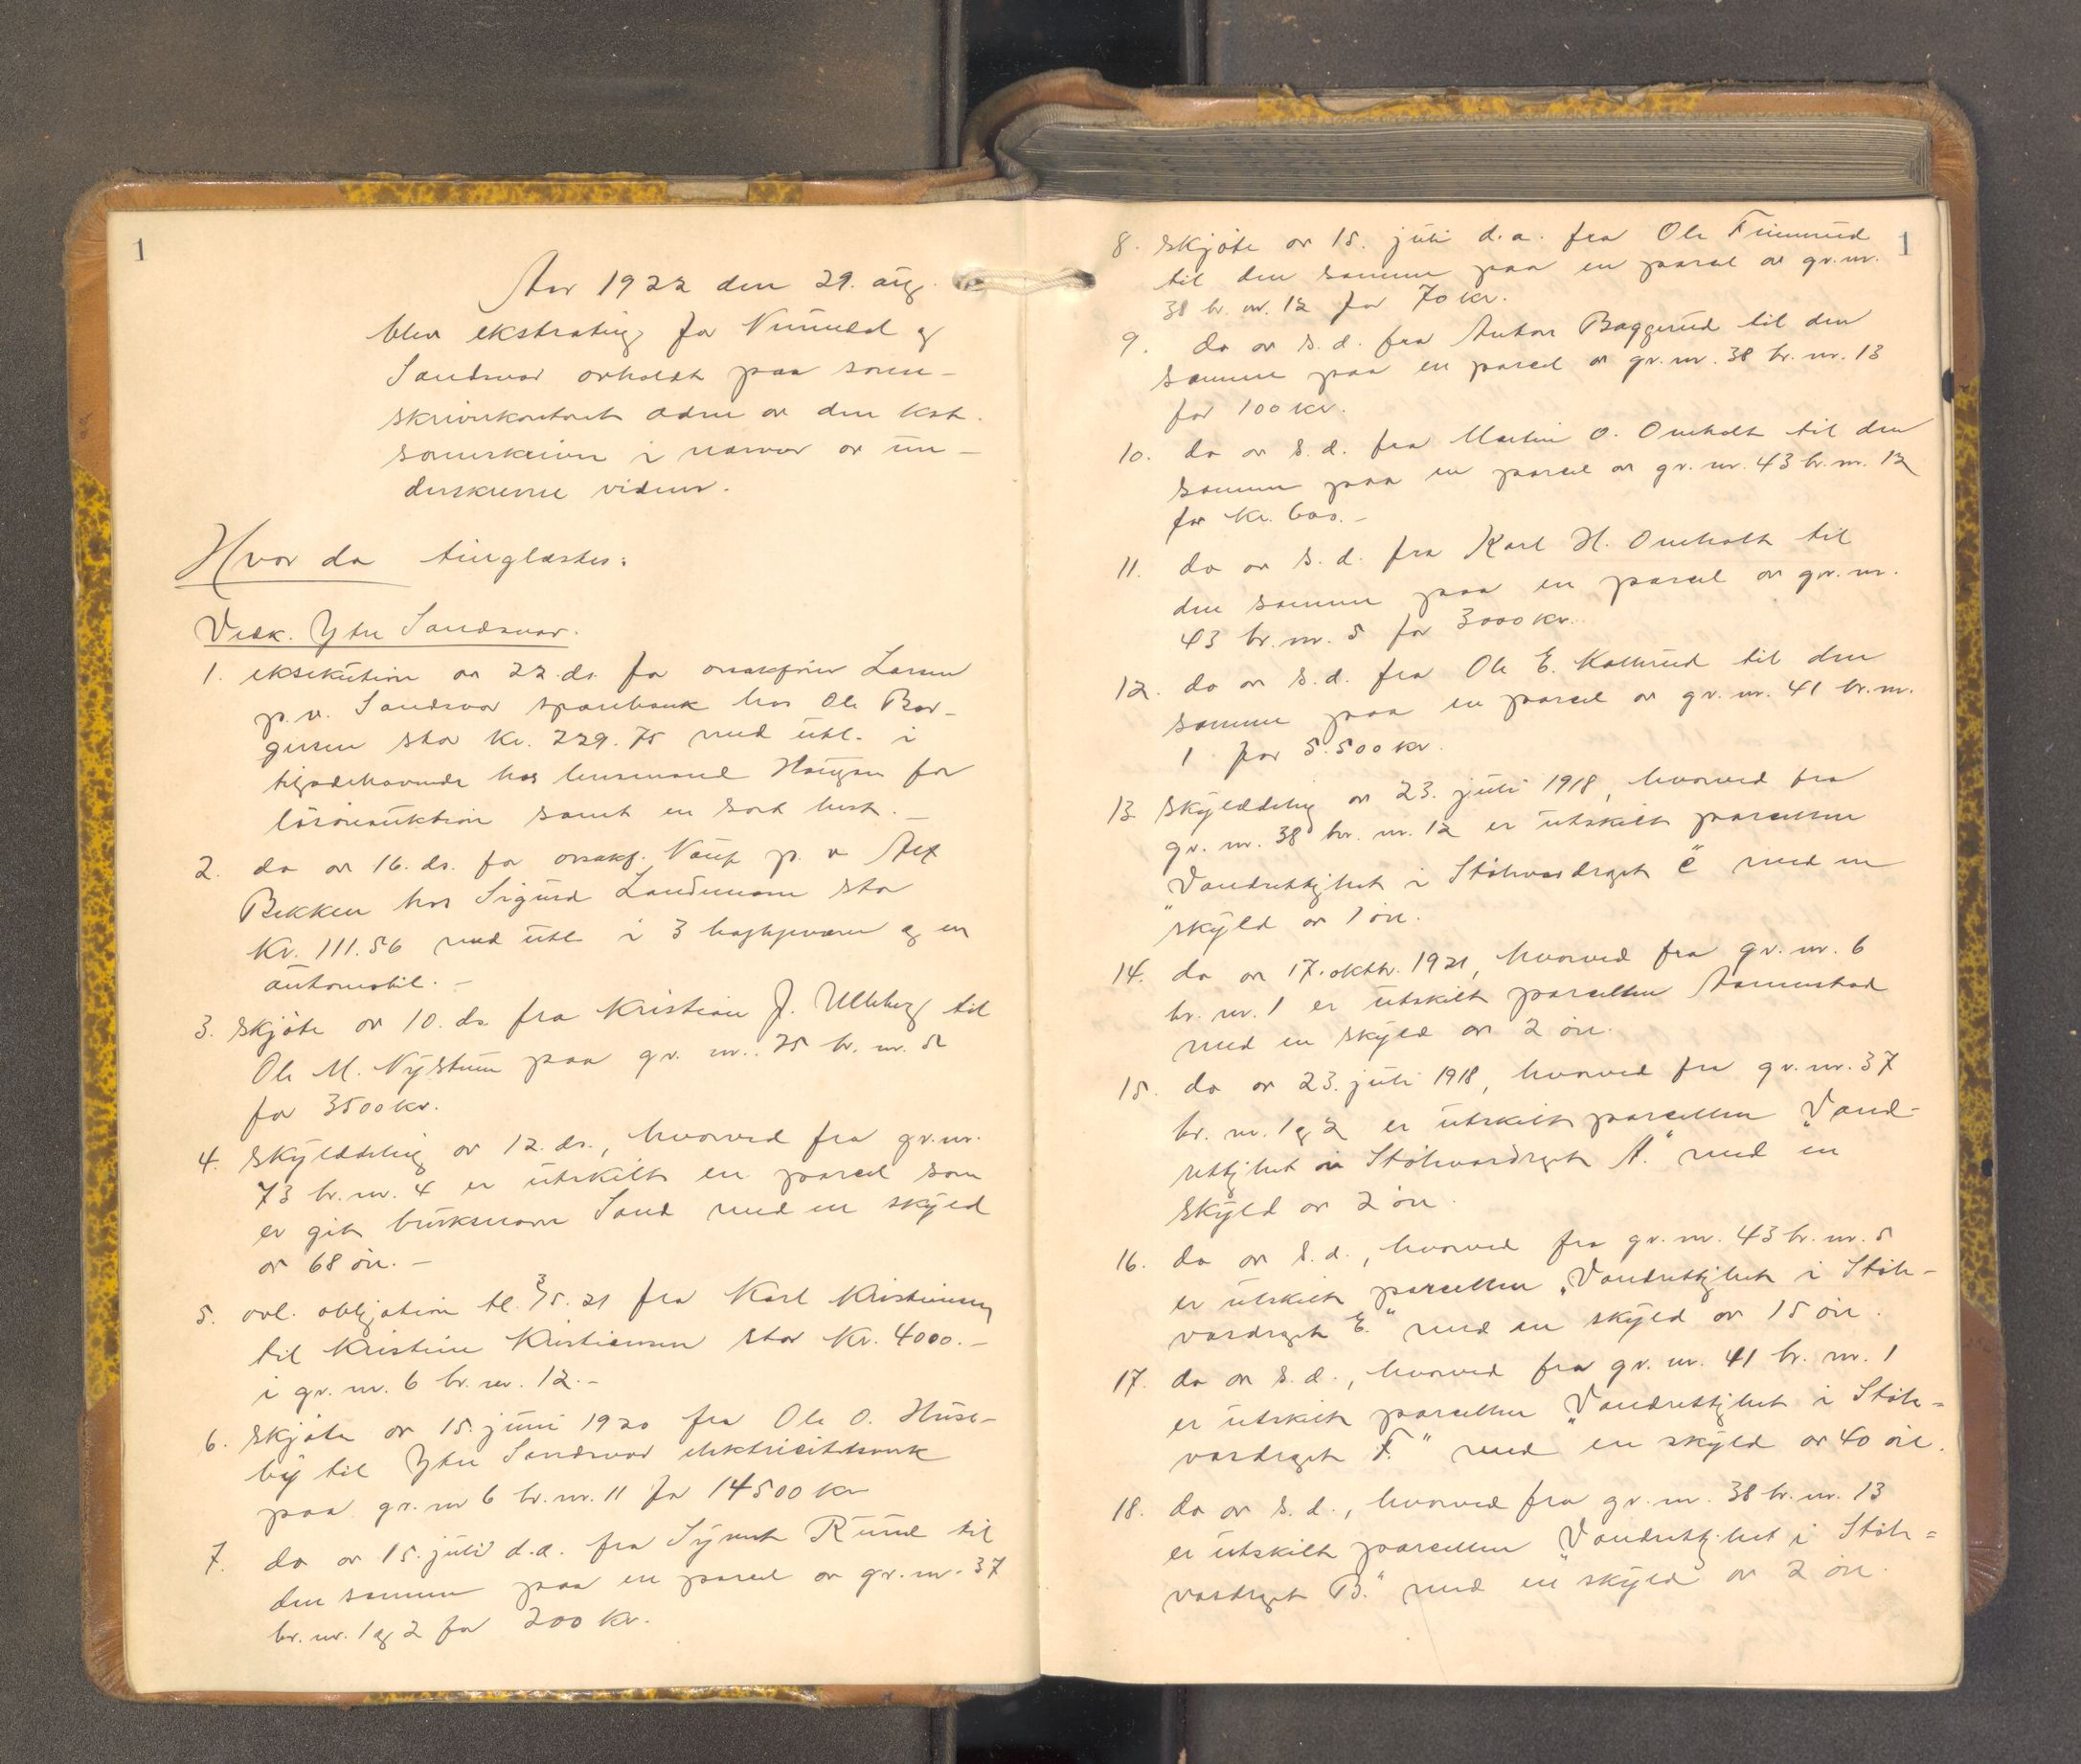 1
Aar 1922 den 29. aug.
blev ekstrating for Numedal og
Sandsvær avholdt paa soren-
skriverkontoret adm av den kst.
sorenskriver i nærvær av un-
derskrevne vidner.
Hvor da tinglæstes:
Vedk. Ytre Sandsvær.
1. eksekution av 22. ds. for overretssakfører Larsen
p.v. Sandsvær sparebank hos Ole Bor-
gersen stor kr. 229.75 med utl. i
tilgodehavende hos lensmand Haugen for
løsøreauktion samt en sort hest. -
2. do av 16. ds. for oversakf. Nauf p. v Alf
Bekken hos Sigurd Landmann stor
Kr. 111.56 med utl i 3 hoftgeværer og en
automobil. -
3. skjøte av 10. ds. fra Kristian J. Ulleberg til
Ole M. Nystuen paa gr. nr. 25 br. nr. 52
for 3500 kr.
4. skylddeling av 12. ds., hvorved fra gr. nr.
73 br. nr. 4 er utskilt en parcel som
er git bruksnavn Sand med en skyld
av 68 øre. -
5. avl. obligation tl. 3/5. 21 fra Karl Kristiansen
til Kristine Kristiansen stor Kr. 4000. -
i gr. nr. 6 br. nr. 12. -
6. skjøte av 15. juni 1920 fra Ole O. Huse-
by til Ytre Sandsvær elektricitetsverk
paa gr. nr 6 br. nr. 11 for 14500 kr
7. do av 15. juli d.a. fra Synnet Ruud til
den samme paa en parcel av gr. nr. 37
br. nr. 1 og 2 for 200 kr.
1
8. skjøte av 15. juli d.a. fra Ole Finnerud
til den samme paa en parcel av gr. nr.
38 br. nr. 12 for 70 kr.
9. do av s. d. fra Anton Baggerud til den
samme paa en parcel av gr. nr. 38 br. nr. 13
for 100 kr.
10. do av s. d. fra Martin O. Omholt til den
samme paa en parcel av gr. nr. 43 br. nr. 12
for kr. 600. -
11. do av s. d. fra Karl H. Omholt til
den samme paa en parcel av gr. nr.
43 br. nr. 5 for 3000 kr.
12. do av s. d. fra Ole E. Kolterud til den
samme paa en parcel av gr. nr. 41 br. nr.
1 for 5.500 kr.
13 skylddeling av 23. juli 1918, hvorved fra
gr. nr. 38 br. nr. 12 er utskilt parcellen
"Vandrettighet i Støhvasdraget C" med en
skyld av 1 øre.
14. do av 17. oktbr. 1921, hvorved fra gr. nr. 6
br. nr. 1 er utskilt parcellen Aarnestad
med en skyld av 2 øre.
15. do av 23. juli 1918, hvorved fra gr. nr. 37
br. nr. 1 og 2 er utskilt parcellen "Vand-
rettighet i Støhvasdraget A." med en
skyld av 2 øre.
16. do av s. d., hvorved fra gr. nr. 43 br. nr. 5
er utskilt parcellen "Vandrettighet i Støh-
vasdraget E." med en skyld av 15 øre.
17. do av s. d., hvorved fra gr. nr. 41 br. nr. 1
er utskilt parcellen "Vandrettighet i Støh=
vasdraget F." med en skyld av 40 øre.
18. do av s. d., hvorved fra gr. nr. 38 br. nr. 13
er utskilt parcellen "Vandrettighet i Støh=
vasdraget B." med en skyld av 2 øre.